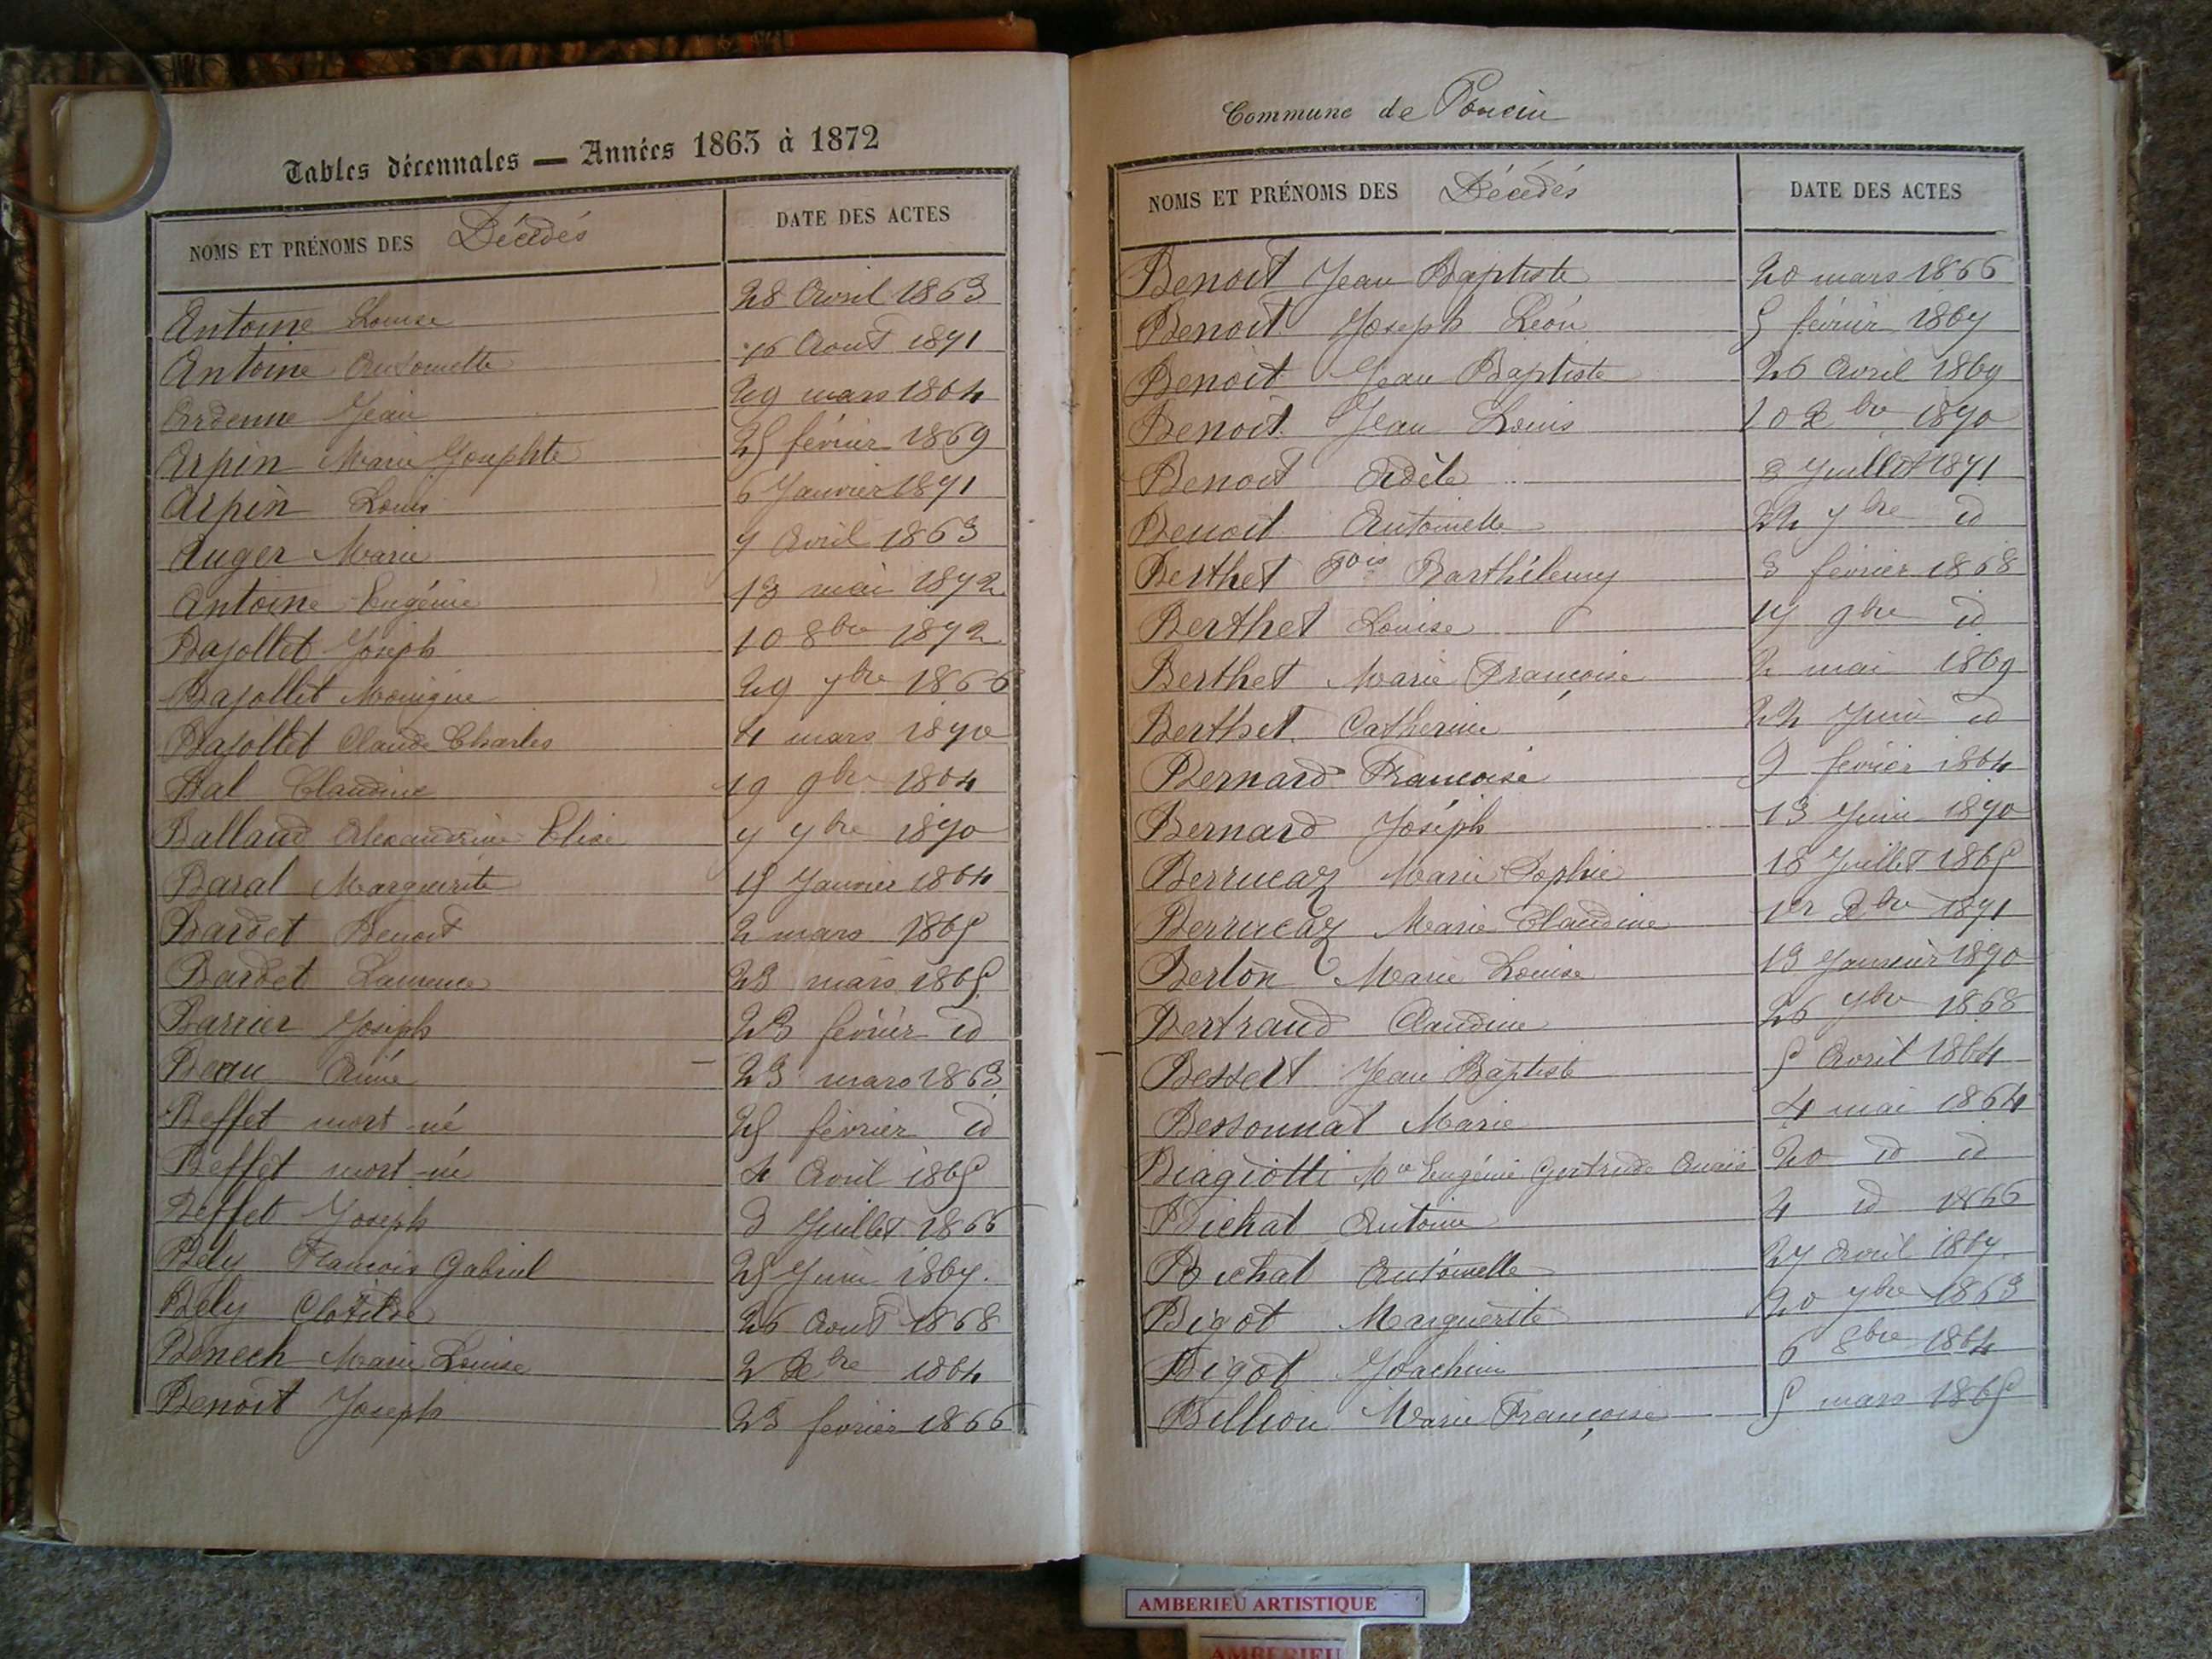 Tables décennales — Années 1863 à 1872
NOMS ET PRÉNOMS DES Décédés DATE DES ACTES
Antoine Louise 28 Avril 1863
Antoine Antoinette 16 Aout 1871
Ardenne Jean 29 mars 1864
Arpin Marie Josephte 25 février 1869
Arpin Louis 6 Janvier 1871
Auger Marie 7 Avril 1863
Antoine Eugénie 13 mai 1872
Bajollet Joseph 10 8bre 1872
Bajollet Monique 29 7bre 1866
Bajollet Claude Charles 4 mars 1870
Bal Claudine 19 9bre 1864
Balland Alexandrine Elise 7 7bre 1870
Baral Marguerite 15 Janvier 1864
Bardet Benoit 2 mars 1865
Bardet Laurence 23 mars 1865
Barrier Joseph 23 février id
Beau Aimé 23 mars 1863
Beffet mort-né 25 février id
Beffet mort-né 4 Avril 1865
Beffet Joseph 3 Juillet 1866
Bely François Gabriel 25 Juin 1867.
Bély Clotilde 26 Aout 1868
Benech Marie Louise 2 Xbre 1864
Benoit Joseph 23 fevrier 1866
Commune de Poncin
NOMS ET PRÉNOMS DES Décédés DATE DES ACTES
Benoit Jean Baptiste 20 mars 1866
Benoit Joseph Léon 5 février 1867
Benoit Jean Baptiste 26 Avril 1869
Benoit Jean Louis 10 Xbre 1870
Benoit Adèle 3 Juillet 1871
Benoit Antoinette 22 7bre id
Berthet Fois Barthélemy 3 février 1868
Berthet Louise 17 9bre id
Berthet Marie Françoise 2 mai 1869
Berthet Catherine 22 Juin id
Bernard Françoise 9 février 1864
Bernard Joseph 13 Juin 1870
Berrucaz Marie Sophie 18 Juillet 1865
Berrucaz Marie Claudine 1er Xbre 1871
Berlon Marie Louise 13 Janvier 1870
Bertrand Claudine 26 7bre 1868
Bessert Jean Baptiste 5 Avril 1864
Bessonnat Marie 4 mai 1864
Biagiotti Mie Eugénie Gertrude Anaïs 20 id id
Bichat Antoine 4 id 1866
Bichat Antoinette 27 Avril 1867.
Bigot Marguerite 20 7bre 1863
Bigot Joachim 6 8bre 1864
Billion Marie Françoise 5 mars 1865
AMBERIEU ARTISTIQUE
AMBERIEU